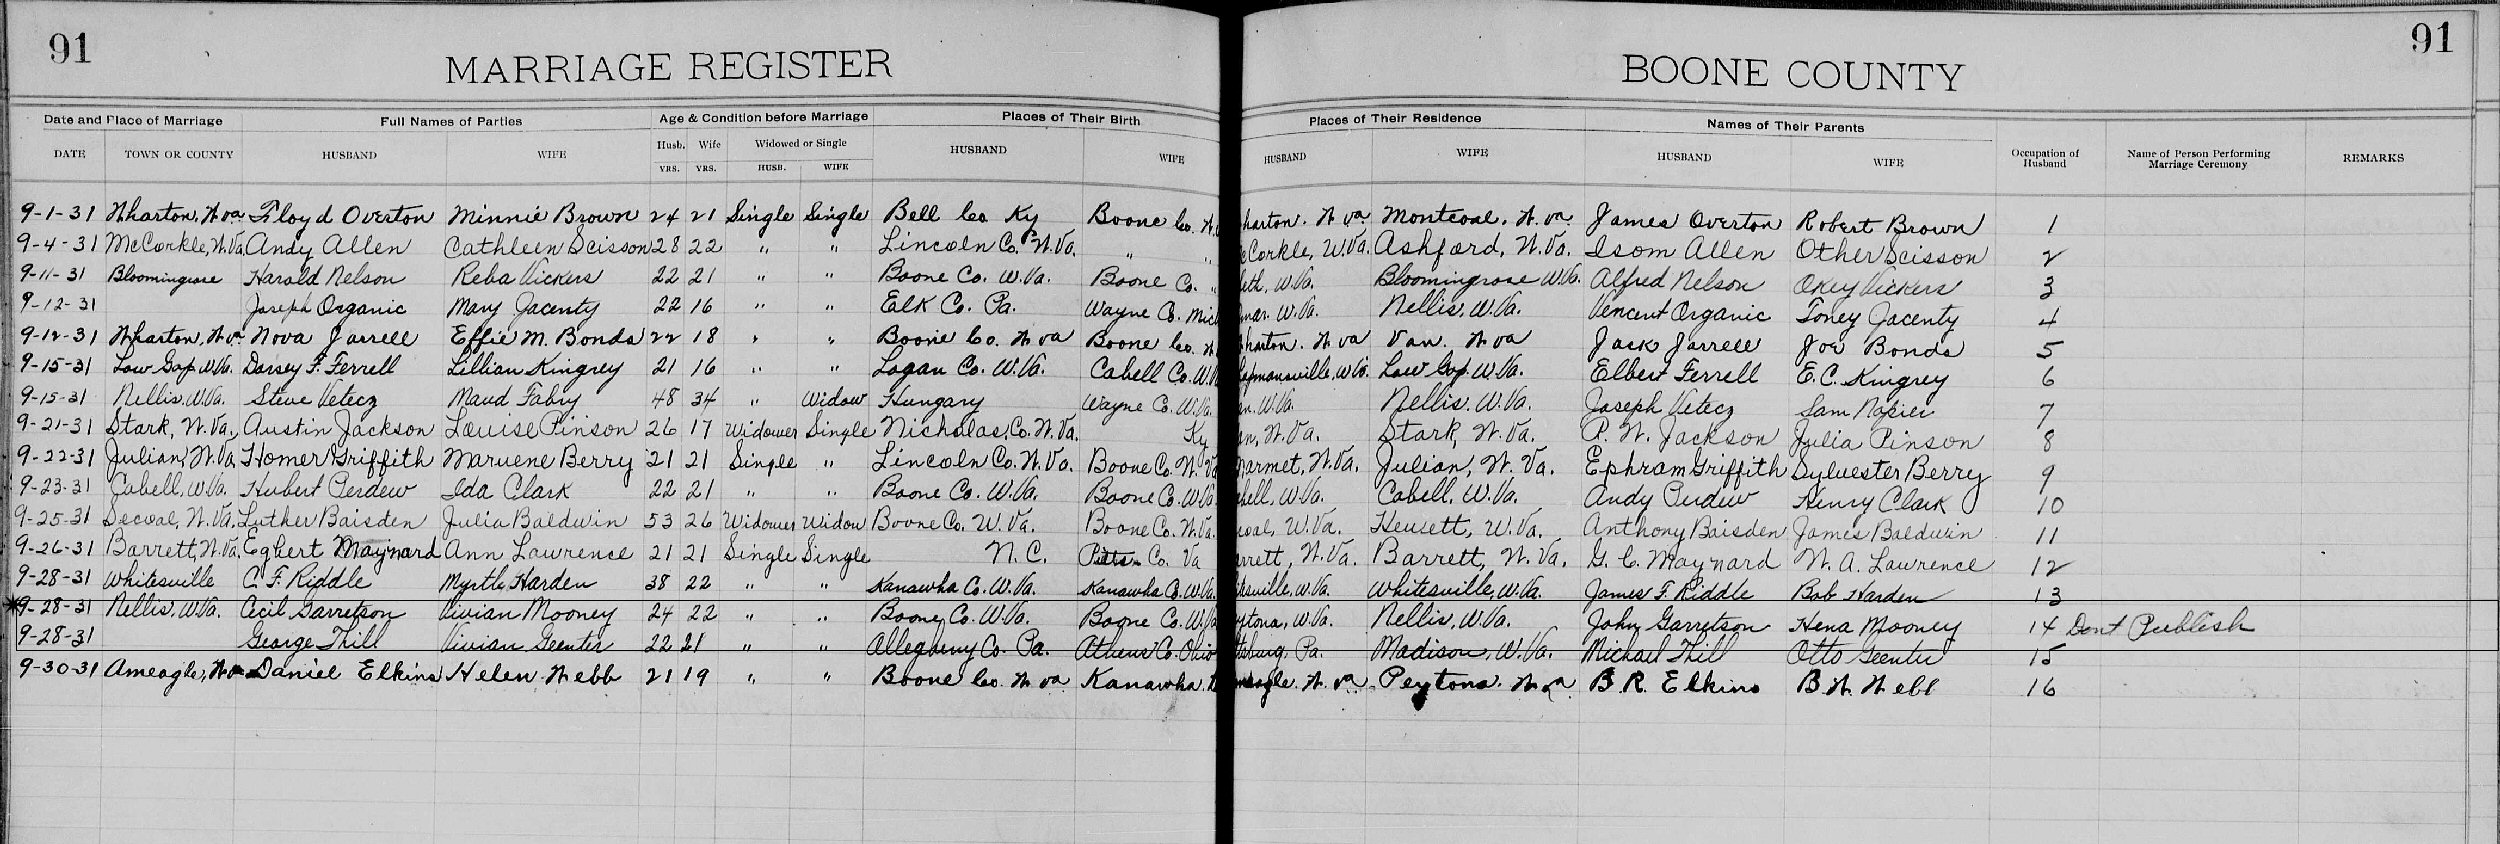 91 91
MARRIAGE REGISTER BOONE COUNTY
Date and Place of Marriage Full Names of Parties Age & Condition before Marriage Places of Their Birth Places of Their Residence Names of Their Parents
DATE TOWN OR COUNTY HUSBAND WIFE Husb. Wife Widowed or Single HUSBAND WIFE HUSBAND WIFE HUSBAND WIFE Occupation of Husband Name of Person Performing Marriage Ceremony REMARKS
YRS. YRS. HUSB. WIFE
9-1-31 Wharton, W va Floyd Overton Minnie Brown 24 21 Single Single Bell Co Ky Boone Co. W. harton. W va Montcoal. W. va. James Overton Robert Brown 1
9-4-31 McCorkle, W.Va. Andy Allen Cathleen Scisson 28 22 " " Lincoln Co. W.Va. " " Corkle, W.Va. Ashford, W.Va. Isom Allen Other Scisson 2
9-11-31 Bloomingrose Harold Nelson Reba Vickers 22 21 " " Boone Co. W.Va. Boone Co. " eth, W.Va. Bloomingrose W.Va. Alfred Nelson Okey Vickers 3
9-12-31 Joseph Organic Mary Jacenty 22 16 " " Elk Co. Pa. Wayne Co. Mich W.Va. Nellis, W.Va. Vencent Organic Toney Jacenty 4
9-12-31 Wharton, W va Nova Jarrell Effie M. Bonds 22 18 " " Boone Co. W va Boone Co. W harton. W va Van. W va Jack Jarrell Joe Bonds 5
9-15-31 Low Gap, W.Va. Dorsey F. Ferrell Lillian Kingrey 21 16 " " Logan Co. W.Va. Cabell Co. W.V apmansville, W.Va. Low Gap. W.Va. Elbert Ferrell E.C. Kingrey 6
9-15-31 Nellis, W.Va. Steve Vetecz Maud Fabry 48 34 " Widow Hungary Wayne Co. W.Va. W.Va. Nellis. W.Va. Joseph Vetecz Sam Napier 7
9-21-31 Stark, W.Va. Austin Jackson Louise Pinson 26 17 Widower Single Nicholas, Co. W.Va. Ky W.Va. Stark, W.Va. P. W. Jackson Julia Pinson 8
9-22-31 Julian, W.Va. Homer Griffith Maruene Berry 21 21 Single " Lincoln Co. W.Va. Boone Co. W. Va armet, W.Va. Julian, W. Va. Ephram Griffith Sylvester Berry 9
9-23-31 Cabell, W.Va. Hubert Perdew Ida Clark 22 21 " " Boone Co. W.Va. Boone Co. W.Va. bell, W.Va. Cabell, W.Va. Andy Perdew Henry Clark 10
9-25-31 Secoal, W.Va. Luther Baisden Julia Baldwin 53 26 Widower Widow Boone Co. W.Va. Boone Co. W.Va. coal, W.Va. Hewett, W.Va. Anthony Baisden James Baldwin 11
9-26-31 Barrett, W.Va. Egbert Maynard Ann Lawrence 21 21 Single Single N.C. Co. Va rrett, W.Va. Barrett, W.Va. G. C. Maynard W. A. Lawrence 12
9-28-31 Whitesville C. F. Riddle Myrtle Harden 38 22 " " Kanawha Co. W.Va. Kanawha Co. W.Va. tesville, W.Va. Whitesville, W.Va. James F. Riddle Bob Harden 13
*9-28-31 Nellis, W.Va. Cecil Garretson Vivian Mooney 24 22 " " Boone Co. W.Va. Boone Co. W.Va ytona, W.Va. Nellis, W.Va. John Garretson Hena Mooney 14 Dont Publish
9-28-31 George Thill Vivian Geenter 22 21 " " Allegheny Co. Pa. Athens Co. Ohio tsburg, Pa. Madison, W.Va. Michael Thill Otto Geenter 15
9-30-31 Ameagle, W va Daniel Elkins Helen Webb 21 19 " " Boone Co. W va Kanawha eagle. W va Peytona. W va B. R. Elkins B. W. Webb 16